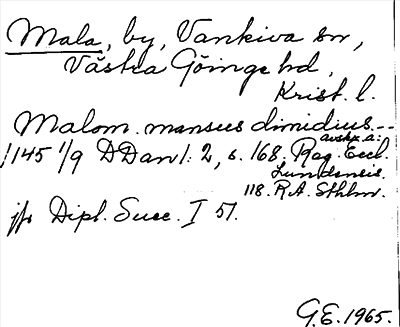 Mala, by, Vankiva sn,
Västra Göinge hd,
Krist. l.
Malom. mansus dimidius ---
avskr. a:
1145 1/9 DDan 1: 2, s. 168. Reg. Eccl.
Lundensis.
118. R.A. Sthlm.
jfr Dipl. Suec. I 51.
G.E. 1965.